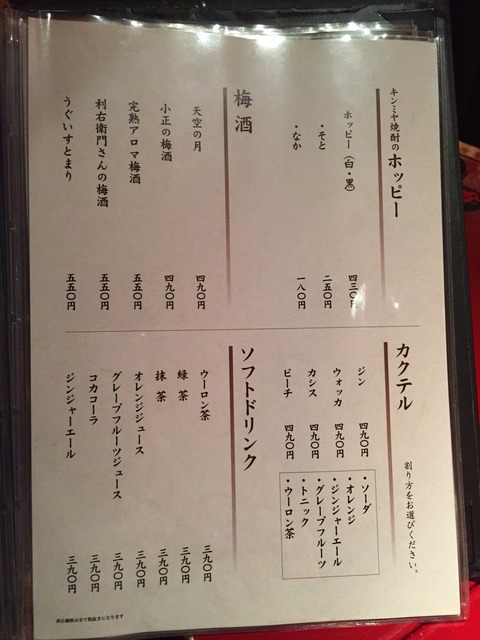 キンミヤ焼酎のホッピー
ホッピー（白・黒） 四三〇円
・そと 二五〇円
・なか 一八〇円
梅酒
天空の月 四九〇円
小正の梅酒 四九〇円
完熟アロマ梅酒 五五〇円
利右衛門さんの梅酒 五五〇円
うぐいすとまり 五五〇円
カクテル
割り方をお選びください。
ジン 四九〇円
ウォッカ 四九〇円
カシス 四九〇円
ピーチ 四九〇円
・ソーダ
・オレンジ
・ジンジャーエール
・グレープフルーツ
・トニック
・ウーロン茶
ソフトドリンク
ウーロン茶 三九〇円
緑茶 三九〇円
抹茶 三九〇円
オレンジジュース 三九〇円
グレープフルーツジュース 三九〇円
コカコーラ 三九〇円
ジンジャーエール 三九〇円
表示価格は全て税抜きになります